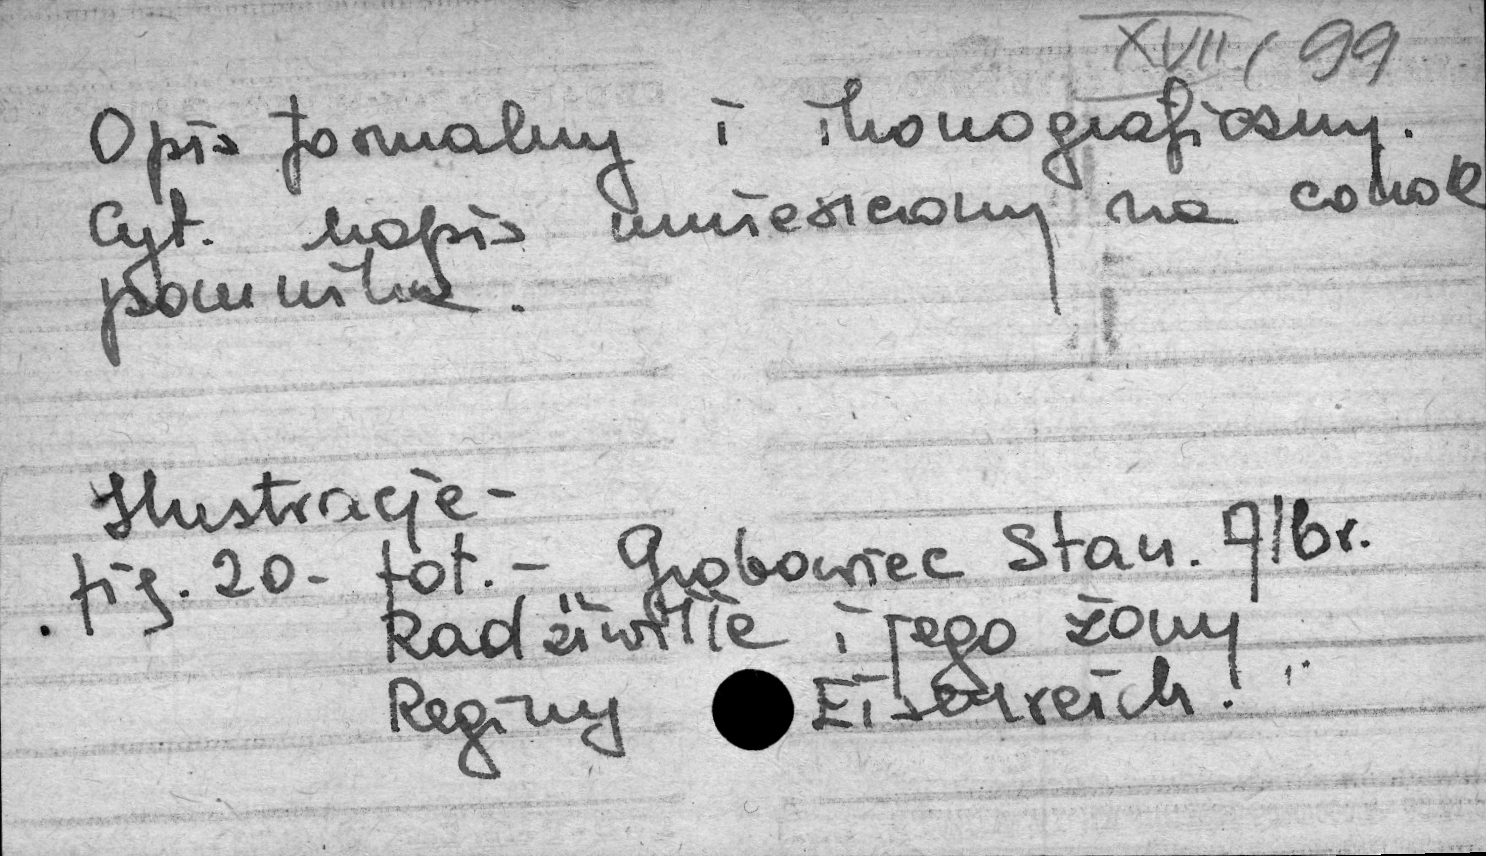 XVII / 99
Opis formalny i ikonograficzny.
Cyt. napis umieszczony na cokole
pomnika.
Ilustracje -
fig. 20 - fot. - Grobowiec Stan. Albr.
Radziwiłła i jego żony
Reginy Eisenreich.